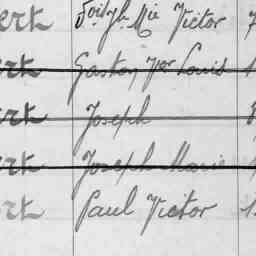 ert Mie Victor
ert Gaston Louis
ert Joseph
ert Joseph Marie
ert Paul Victor